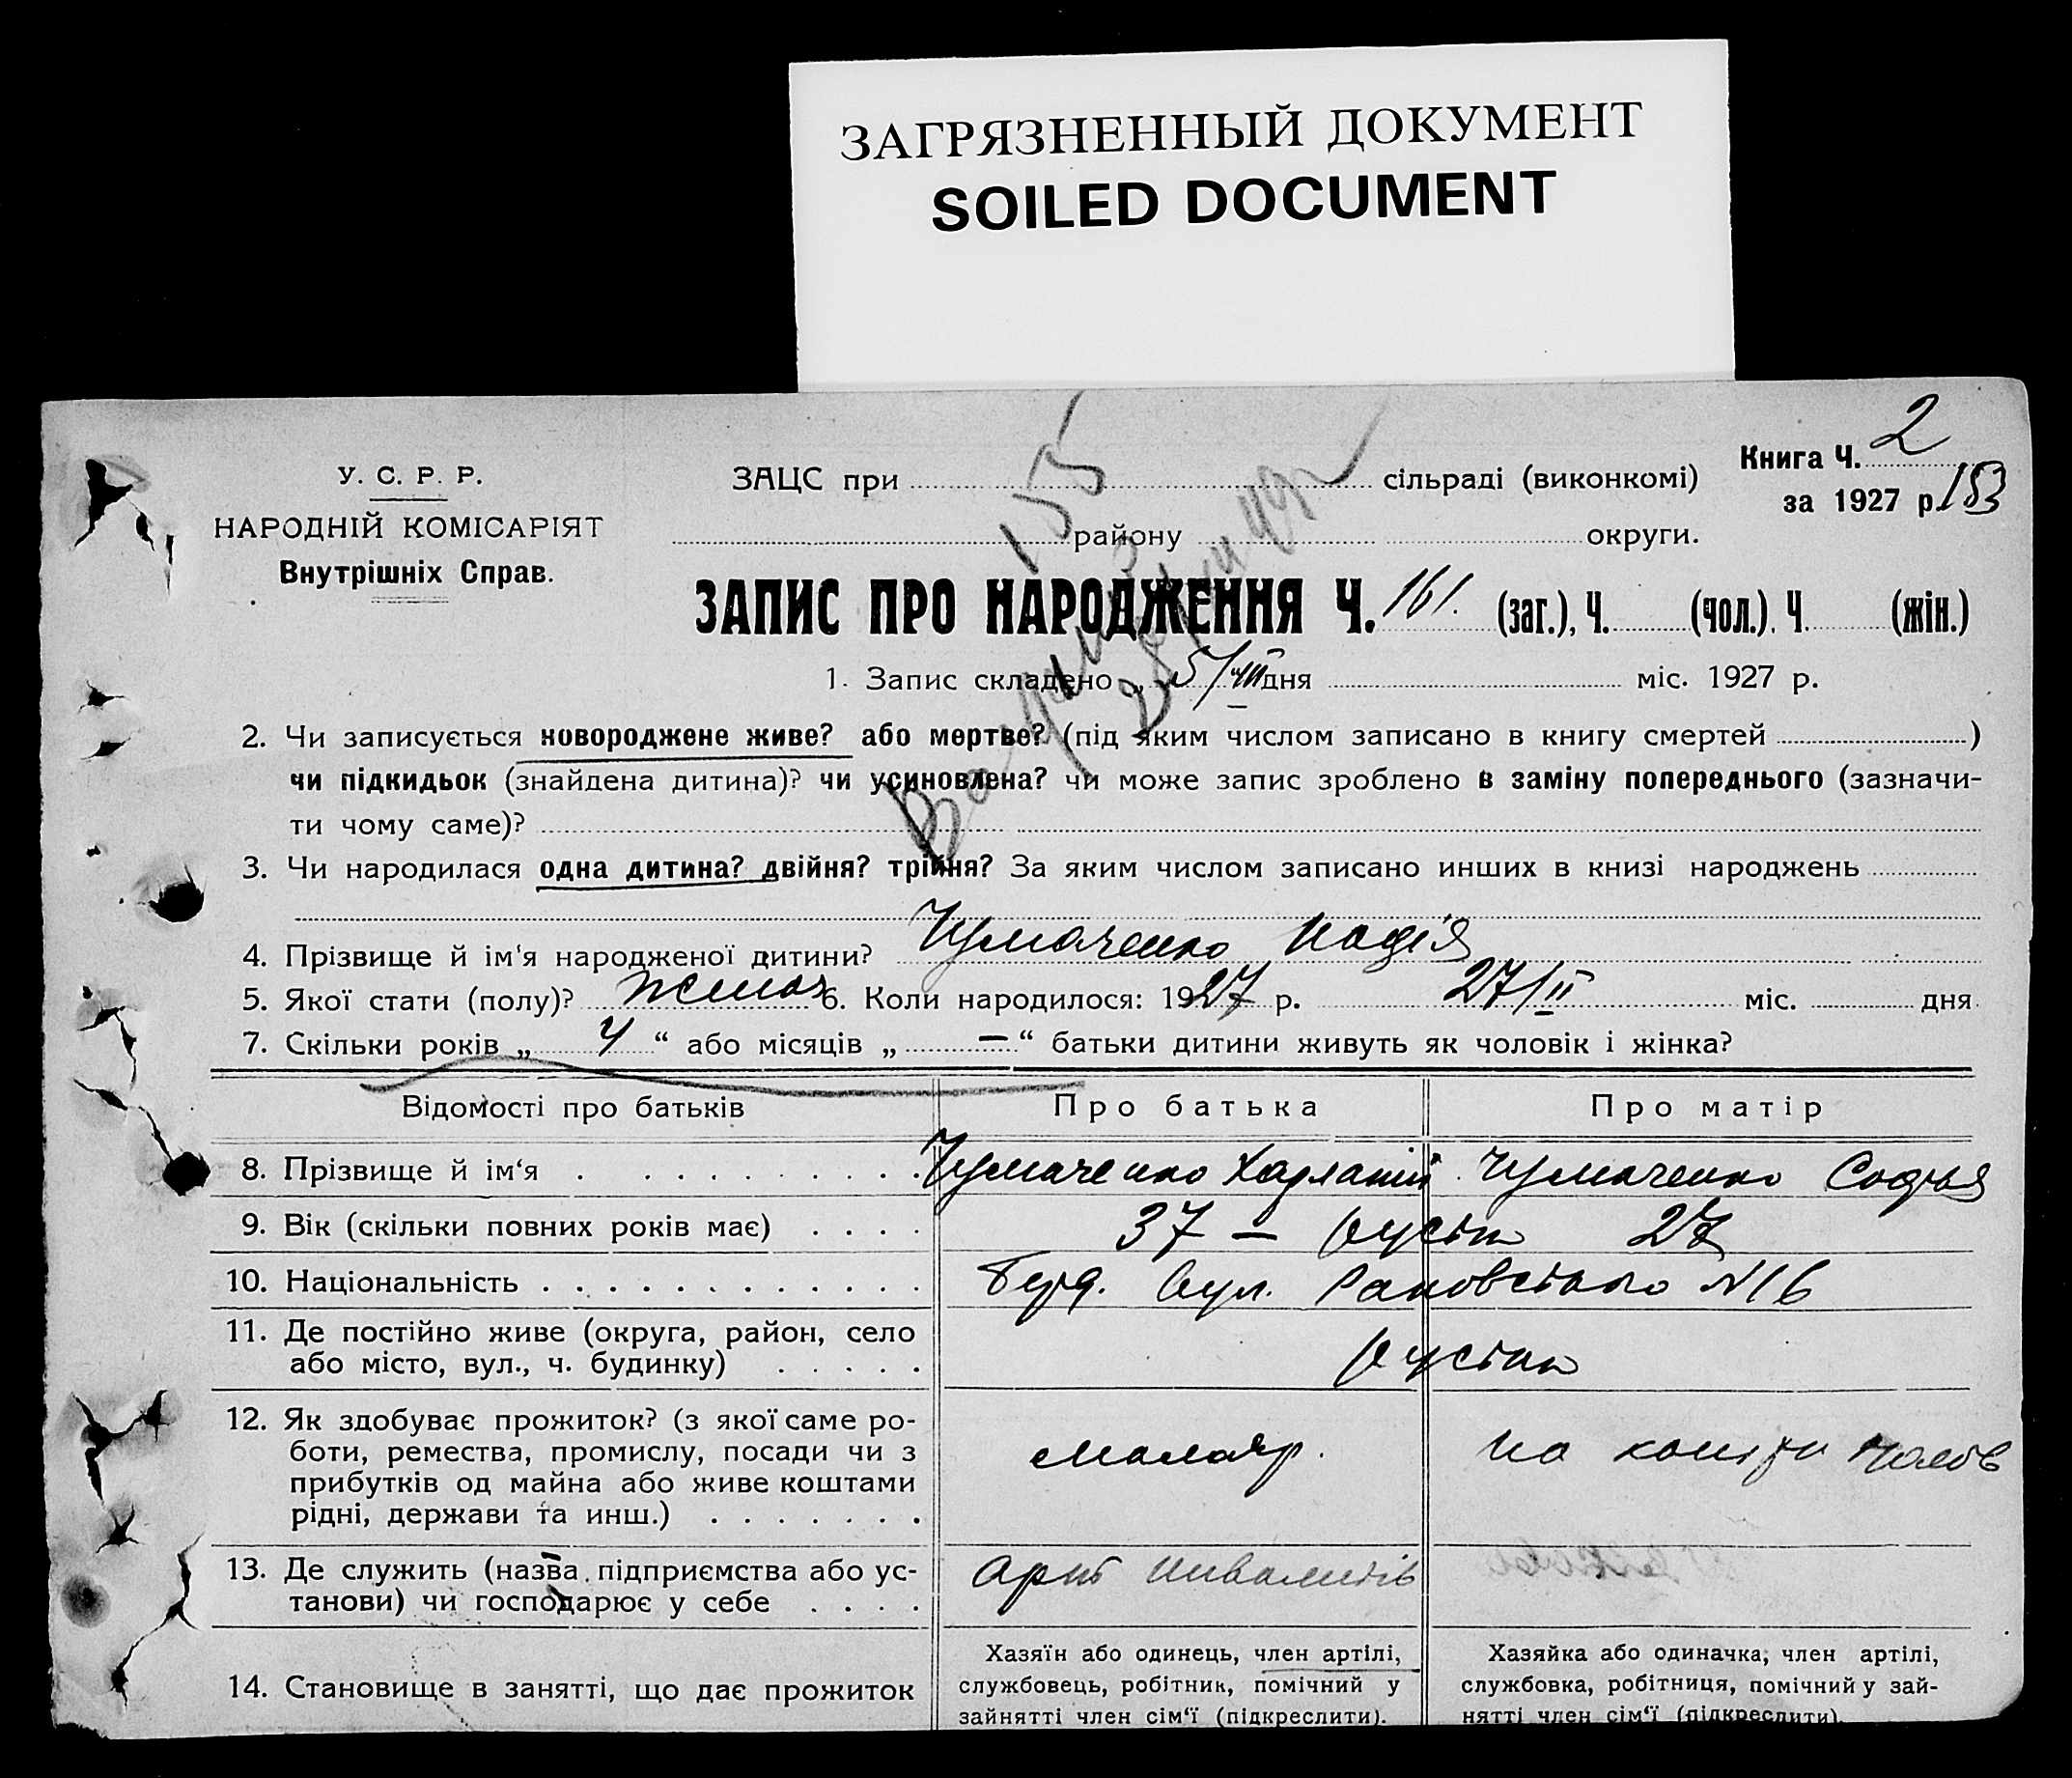 ЗАГРЯЗНЕННЫЙ ДОКУМЕНТ
SOILED DOCUMENT
155
У. С. Р. Р.
НАРОДНІЙ КОМІСАРІЯТ
Внутрішніх Справ.
ЗАЦС при сільраді (виконкомі)
району округи.
Книга Ч. 2
за 1927 р. 153
ЗАПИС ПРО НАРОДЖЕННЯ Ч. 161. (заг.), Ч. (чол.). Ч. (жін.)
1. Запис складено „ 5/VII дня міс. 1927 р.
2. Чи записується новороджене живе? або мертве? (під яким числом записано в книгу смертей )
чи підкидьок (знайдена дитина)? чи усиновлена? чи може запис зроблено в заміну попереднього (зазначи-
ти чому саме)?
3. Чи народилася одна дитина? двійня? трійня? За яким числом записано инших в книзі народжень
4. Прізвище й ім'я народженої дитини? Чумаченко Надія
5. Якої стати (полу)? жіноч 6. Коли народилося: 1927 р. 27/II міс. дня
7. Скільки років „ 4 “ або місяців „ — “ батьки дитини живуть як чоловік і жінка?
Відомості про батьків Про батька Про матір
8. Прізвище й ім'я Чумаченко Харлампій Чумаченко Софья
9. Вік (скільки повних років має) 37 — 27
10. Національність Берд. вул. Раковського №16
11. Де постійно живе (округа, район, село
або місто, вул., ч. будинку)
12. Як здобуває прожиток? (з якої саме ро-
боти, ремества, промислу, посади чи з
прибутків од майна або живе коштами
рідні, держави та инш.)
маляр. на кошти чолов
13. Де служить (назва підприємства або ус-
танови) чи господарює у себе
Арт инвалидів
14. Становище в занятті, що дає прожиток
Хазяїн або одинець, член артілі,
службовець, робітник, помічний у
зайнятті член сім'ї (підкреслити).
Хазяйка або одиначка; член артілі,
службовка, робітниця, помічний у зай-
нятті член сім'ї (підкреслити).